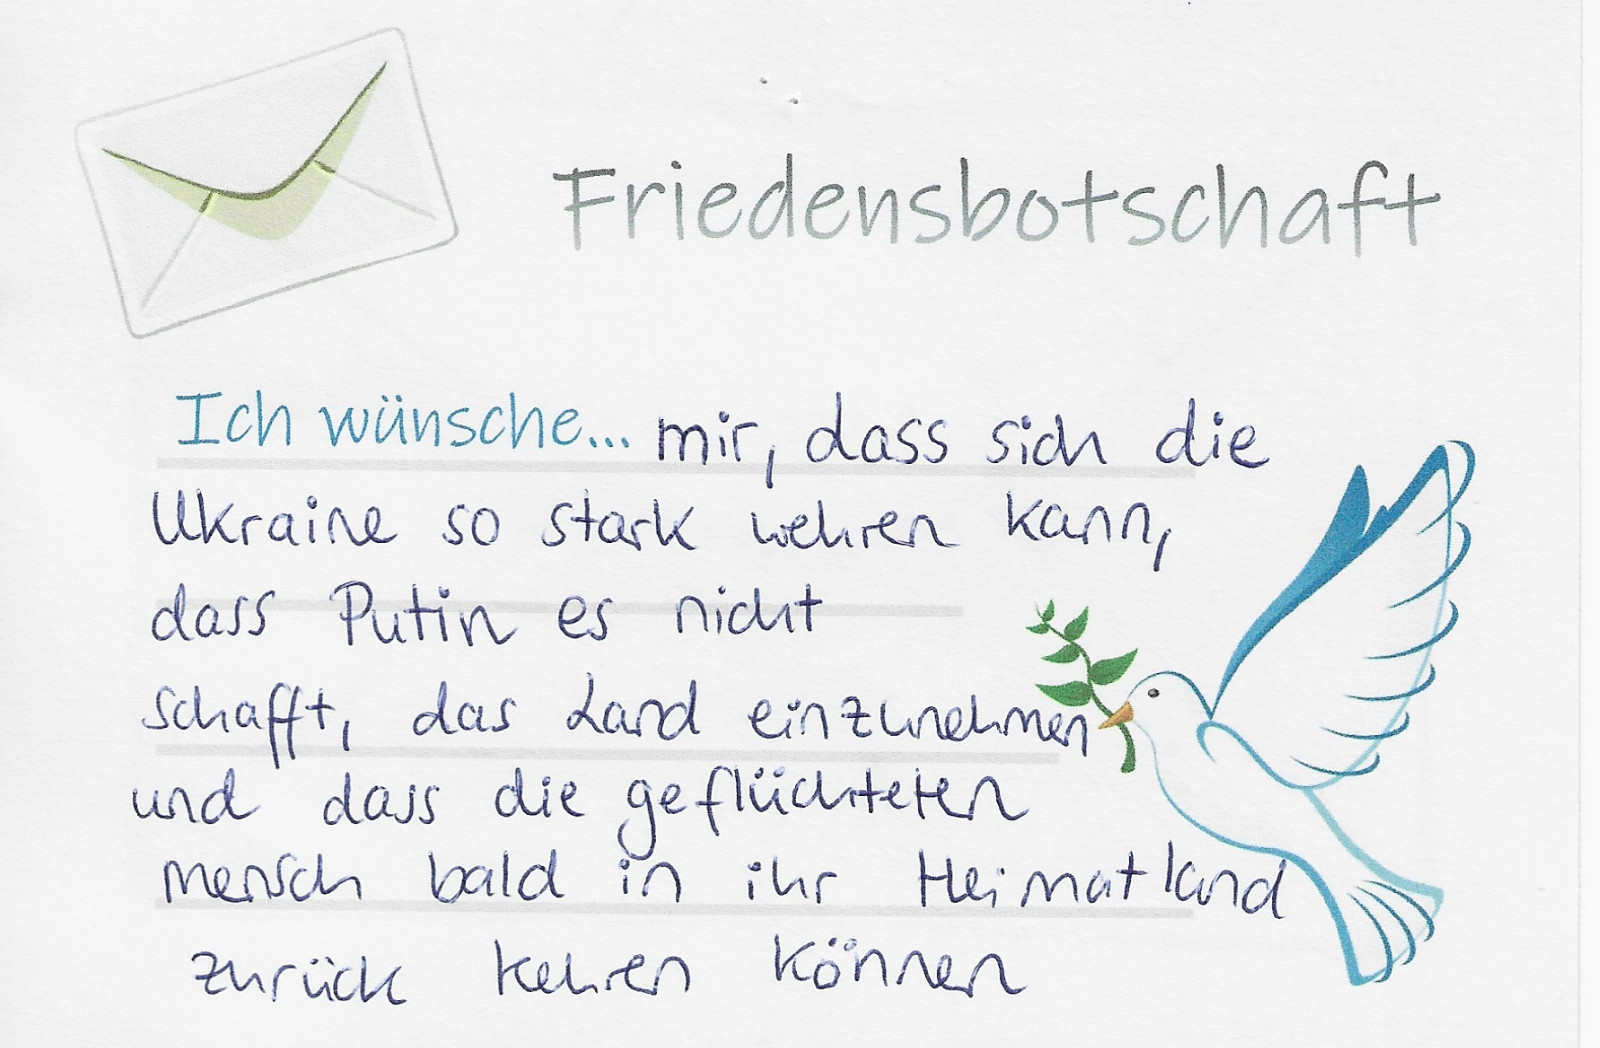 Friedensbotschaft
Ich wünsche... mir, dass sich die
Ukraine so stark wehren kann,
dass Putin es nicht
schafft, das Land einzunehmen
und dass die geflüchteten
mensch bald in ihr Heimatland
zurück kehren können